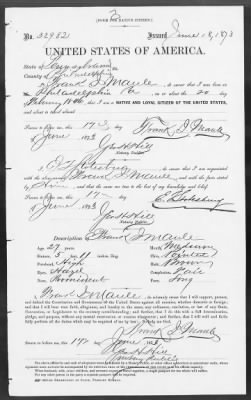 [FORM FOR NATIVE CITIZEN.]
No. 32982 Issued June 18, 1873
UNITED STATES OF AMERICA.
State of Pennsylvania
County of Philadelphia
I, Frank I. Maule, do swear that I was born in
Philadelphia Pa. on or about the 20 day of
February 1846, that I am a NATIVE AND LOYAL CITIZEN OF THE UNITED STATES,
and about to travel abroad
Sworn to before me, this 17th day
of June 1873 Frank I. Maule
Jas H Hill
Notary Public
I, do swear that I am acquainted with
the above-named Frank I. Maule, and with the facts stated
by him and that the same are true to the best of my knowledge and belief.
Sworn to before me, this 17th day
of June 1873
Jas H Hill
Notary Public
Description of Frank I. Maule
Age: 27 years Mouth: Medium
Stature: 5 feet 11 inches, Eng. Chin: Pointed
Forehead: High Hair: Brown
Eyes: Hazel Complexion: Fair
Nose: Prominent Face: Long
I, Frank I. Maule, do solemnly swear that I will support, protect,
and defend the Constitution and Government of the United States against all enemies, whether domestic or foreign;
and that I will bear true faith, allegiance, and loyalty to the same, any ordinance, resolution, or law of any State,
Convention, or Legislature to the contrary notwithstanding; and further, that I do this with a full determination,
pledge, and purpose, without any mental reservation or evasion whatsoever; and further, that I will well and faith-
fully perform all the duties which may be required of me by law: So help me God.
Frank I. Maule
Sworn to before me, this 17th day
of June 1873
Jas H Hill
Notary Public